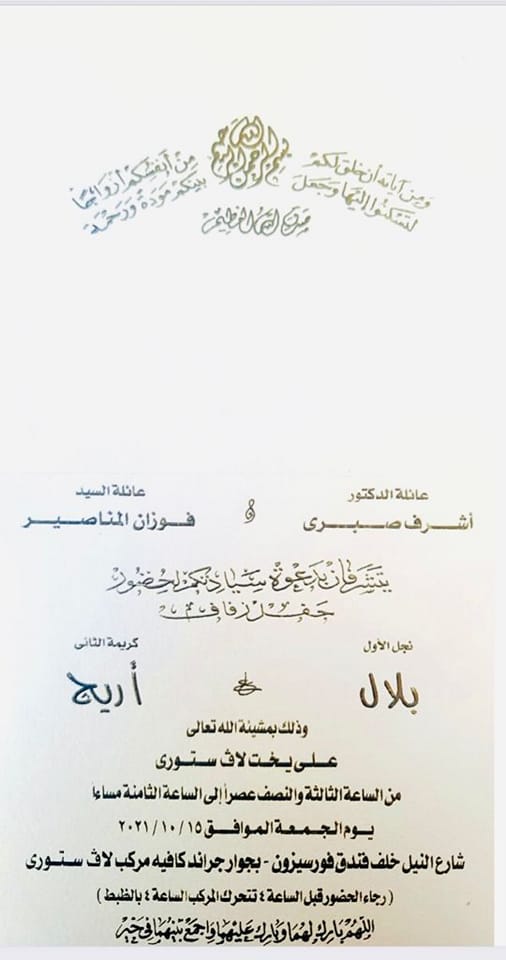 بسم الله الرحمن الرحيم
ومن آياته أن خلق لكم من أنفسكم أزواجا
لتسكنوا إليها وجعل بينكم مودة ورحمة
صدق الله العظيم
عائلة الدكتور
أشرف صبرى
و
عائلة السيد
فوزان المناصير
يتشرفان بدعوة سيادتكم لحضور
حفل زفاف
نجل الأول
بلال
على
كريمة الثانى
أريج
وذلك بمشيئة الله تعالى
على يخت لاڤ ستورى
من الساعة الثالثة والنصف عصراً إلى الساعة الثامنة مساءاً
يوم الجمعة الموافق ١٥ / ١٠ / ٢٠٢١
شارع النيل خلف فندق فورسيزون - بجوار جراند كافيه مركب لاڤ ستورى
( رجاء الحضور قبل الساعة ٤ تتحرك المركب الساعة ٤ بالظبط )
اللهم بارك لهما وبارك عليهما واجمع بينهما في خير